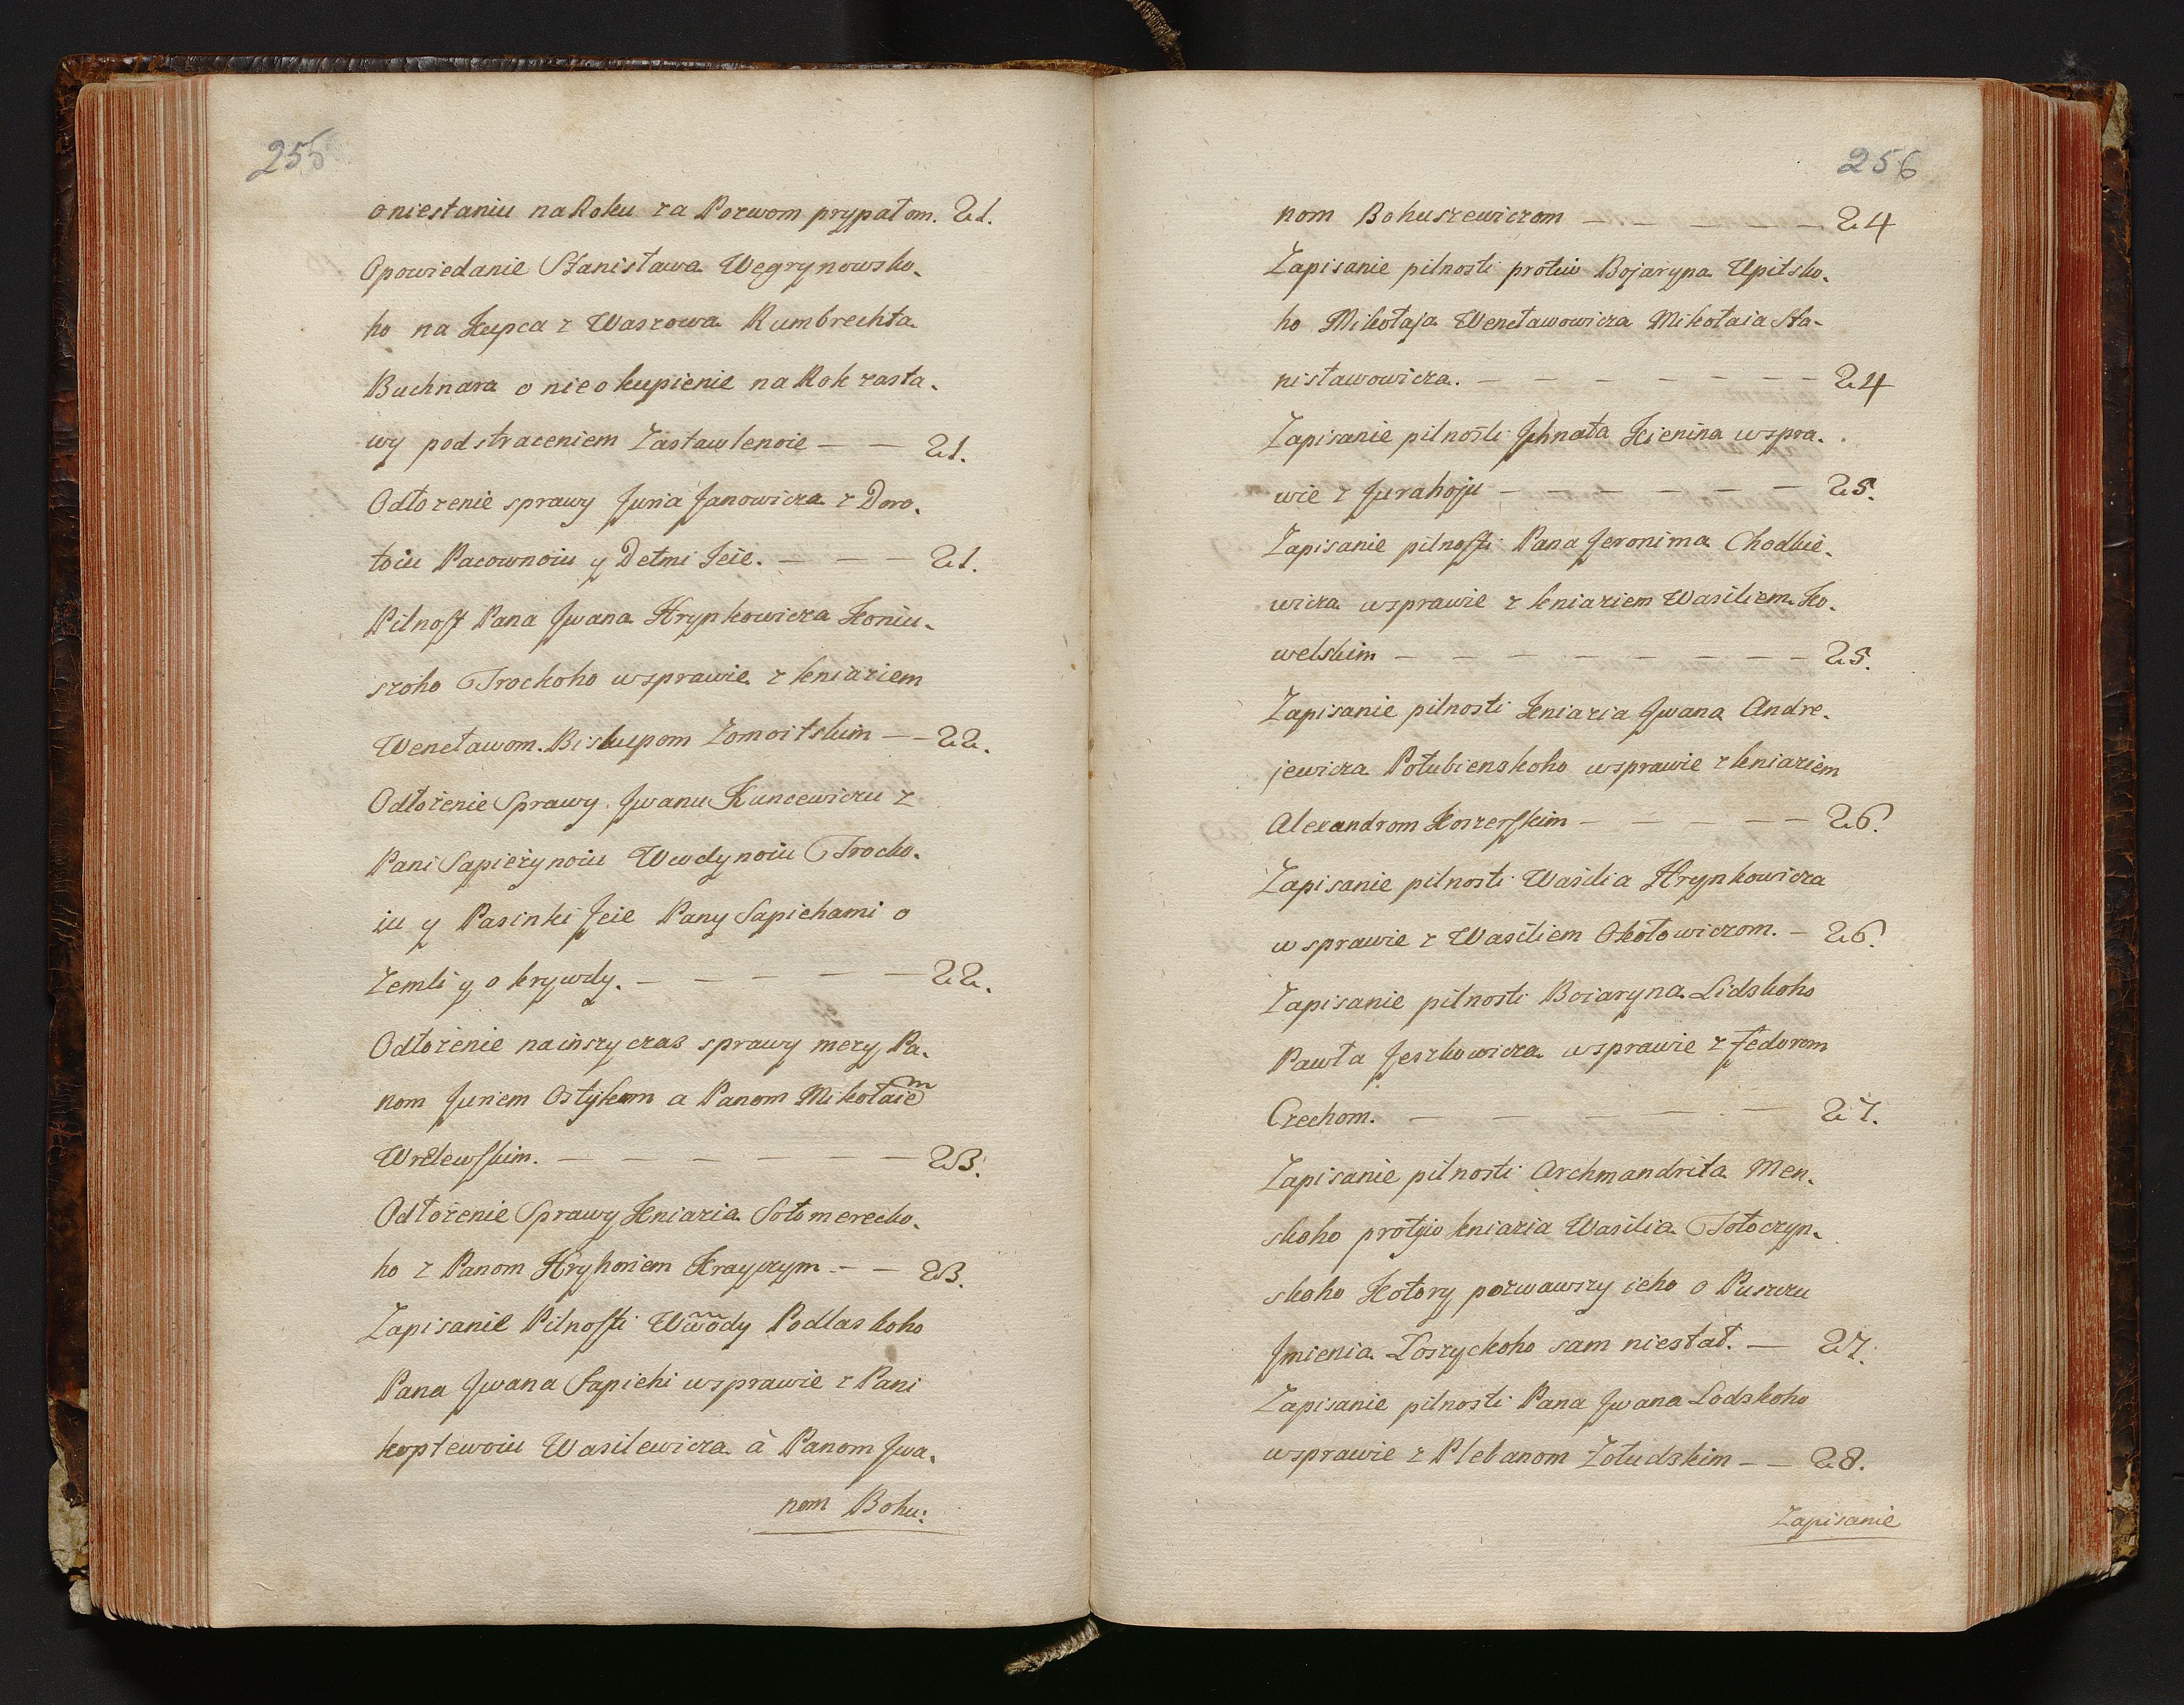 255
o niestaniu na Roku za Pozwom prypałom. 21.
Opowiedanie Stanisława Wegrynowsko-
ho na Kupca z Waszowa Rumbrechta
Buchnara o nieokupienie na Rok zasta-
wy pod straceniem Zastawlenoie — — 21.
Odłożenie sprawy Juria Janowicza z Doro-
toiu Pacownoiu y Detmi Jeie. — — — 21.
Pilnost Pana Jwana Hrynkowicza Koniu-
szoho Trockoho w sprawie z kniaziem
Wencławom Biskupom Zomoitskim — — 22.
Odłożenie Sprawy Jwanu Kuncewiczu z
Pani Sapieżynoiu Wwdynoiu Trocko-
iu y Pasinki Jeie Pany Sapiehami o
Zemli y o krywdy. — — — — — 22.
Odłożenie na inszy czas sprawy mezy Pa-
nom Juriem Ostykom a Panom Mikołaiem
Wrelewskim. — — — — — — 23.
Odłożenie Sprawy Kniazia Sołomerecko-
ho z Panom Hryhoriem Krayczym — — 23.
Zapisanie Pilnosti Wwody Podlaskoho
Pana Jwana Sapiehi w sprawie z Pani
koptewoiu Wasilewicza à Panom Jwa-
nom Bohu:
256
nom Bohuszewiczom — — — — — 24
Zapisanie pilnosti protiw Bojaryna Upitsko-
ho Mikołaja Wencławowicza Mikołaia Sta-
nisławowicza. — — — — — — — 24
Zapisanie pilnosti Jhnata Kienina w spra-
wie z Jurahoju — — — — — — 25.
Zapisanie pilnosti Pana Jeronima Chodkie-
wicza w sprawie z kniaziem Wasiliem Ko-
welskim — — — — — — — — 25.
Zapisanie pilnosti Kniazia Jwana Andre-
jewicza Połubienskoho w sprawie z kniaziem
Alexandrom Koszerskim — — — — — 26.
Zapisanie pilnosti Wasilia Hrynkowicza
w sprawie z Wasiliem Okołowiczom. — 26.
Zapisanie pilnosti Boiaryna Lidskoho
Pawła Jeszkowicza w sprawie z Fedorom
Czechom. — — — — — 27.
Zapisanie pilnosti Archmandrita Men-
skoho protyw kniazia Wasilia Tołoczyn-
skoho Kotory pozwawszy ieho o Puszczu
Jmienia Łoszyckoho sam niestał. — 27.
Zapisanie pilnosti Pana Jwana Lodskoho
w sprawie z Plebanom Zołudskim — — 28.
Zapisanie